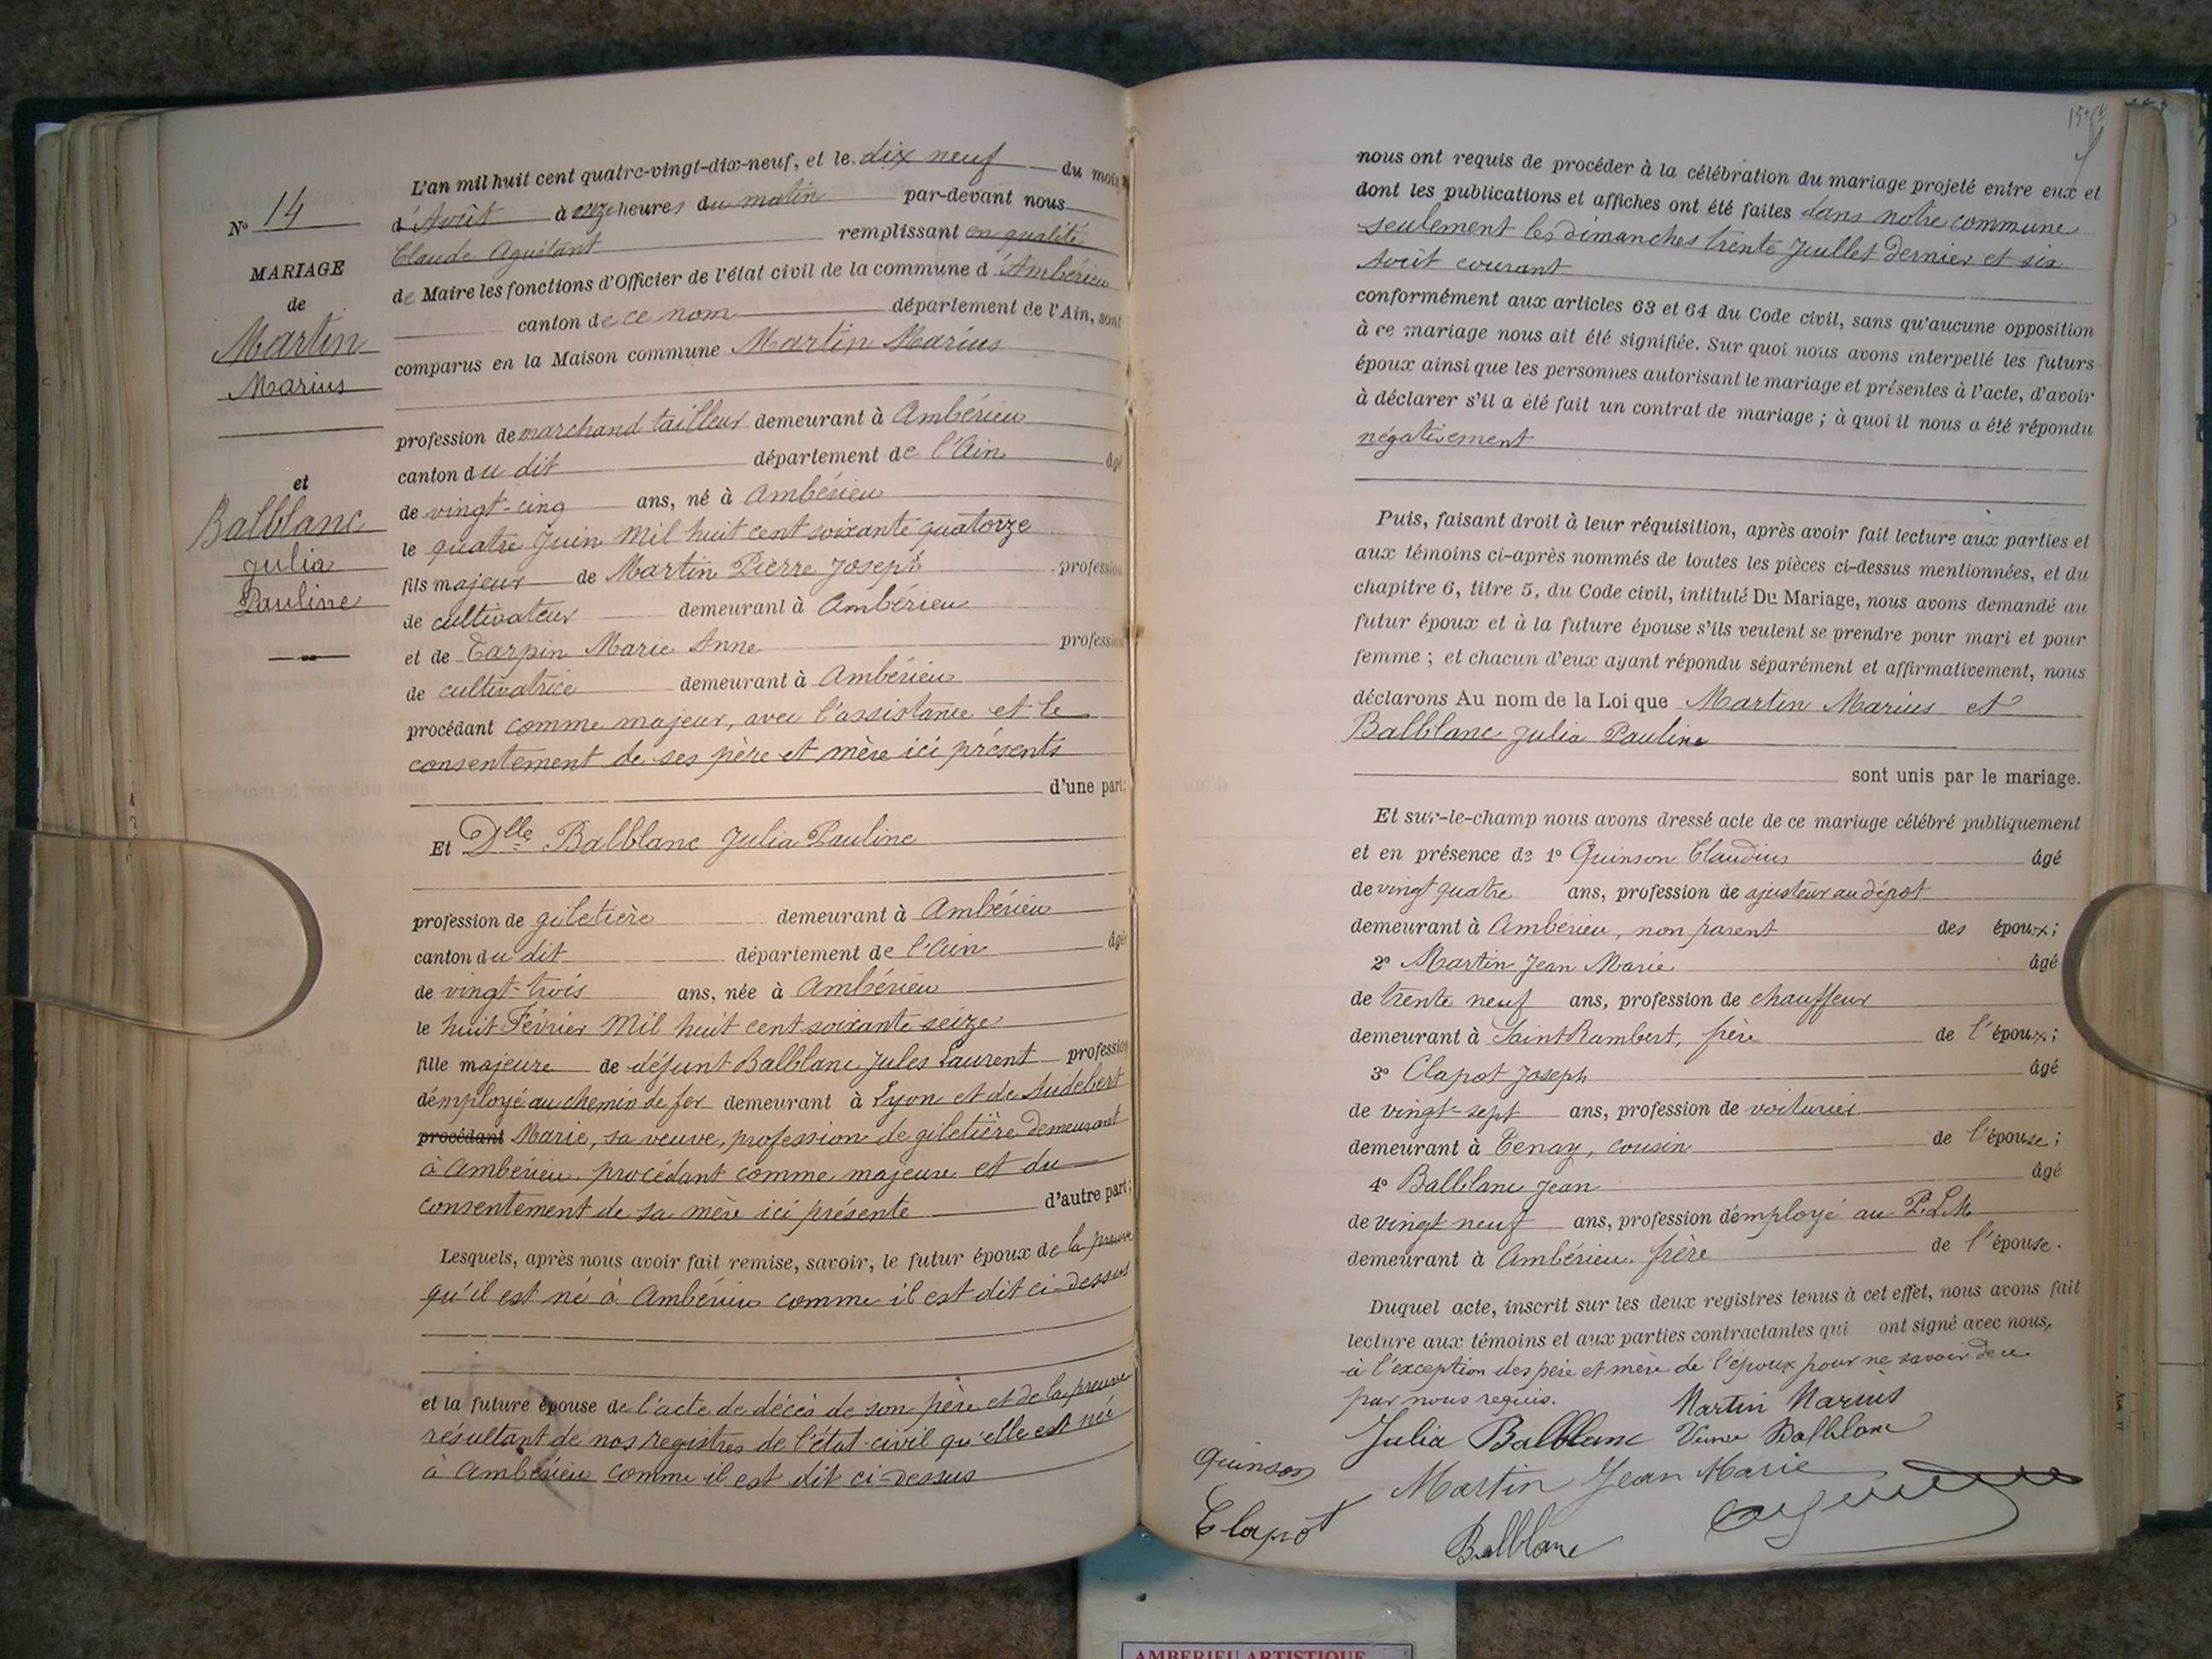 N° 14
MARIAGE
de
Martin
Marius
et
Balblanc
Julia
Pauline
L'an mil huit cent quatre-vingt-dix-neuf, et le dix neuf du mois
d'Août à onze heures du matin par-devant nous
Claude Aguétant remplissant en qualité
de Maire les fonctions d'Officier de l'état civil de la commune d'Ambérieu
canton de ce nom département de l'Ain, sont
comparus en la Maison commune Martin Marius
profession de marchand tailleur demeurant à Ambérieu
canton du dit département de l'Ain âgé
de vingt-cinq ans, né à Ambérieu
le quatre Juin Mil huit cent soixante quatorze
fils majeur de Martin Pierre Joseph profession
de cultivateur demeurant à Ambérieu
et de Tarpin Marie Anne profession
de cultivatrice demeurant à Ambérieu
procédant comme majeur, avec l'assistance et le
consentement de ses père et mère ici présents
d'une part;
Et Dlle Balblanc Julia Pauline
profession de giletière demeurant à Ambérieu
canton du dit département de l'Ain âgée
de vingt-trois ans, née à Ambérieu
le huit Février Mil huit cent soixante seize
fille majeure de défunt Balblanc Jules Laurent profession
d'employé au chemin de fer demeurant à Lyon et de Audebert
procédant Marie, sa veuve, profession de giletière demeurant
à Ambérieu, procédant comme majeure et du
consentement de sa mère ici présente d'autre part;
Lesquels, après nous avoir fait remise, savoir, le futur époux de la preuve
qu'il est né à Ambérieu comme il est dit ci-dessus
et la future épouse de l'acte de décès de son père et de la preuve
résultant de nos registres de l'état-civil qu'elle est née
à Ambérieu comme il est dit ci-dessus
nous ont requis de procéder à la célébration du mariage projeté entre eux et
dont les publications et affiches ont été faites dans notre commune
seulement les dimanches trente Juillet dernier et six
Août courant
conformément aux articles 63 et 64 du Code civil, sans qu'aucune opposition
à ce mariage nous ait été signifiée. Sur quoi nous avons interpellé les futurs
époux ainsi que les personnes autorisant le mariage et présentes à l'acte, d'avoir
à déclarer s'il a été fait un contrat de mariage ; à quoi il nous a été répondu
négativement
Puis, faisant droit à leur réquisition, après avoir fait lecture aux parties et
aux témoins ci-après nommés de toutes les pièces ci-dessus mentionnées, et du
chapitre 6, titre 5, du Code civil, intitulé Du Mariage, nous avons demandé au
futur époux et à la future épouse s'ils veulent se prendre pour mari et pour
femme ; et chacun d'eux ayant répondu séparément et affirmativement, nous
déclarons Au nom de la Loi que Martin Marius et
Balblanc Julia Pauline
sont unis par le mariage.
Et sur-le-champ nous avons dressé acte de ce mariage célébré publiquement
et en présence de 1° Quinson Claudius âgé
de vingt quatre ans, profession de ajusteur au dépot
demeurant à Ambérieu, non parent des époux;
2° Martin Jean Marie âgé
de trente neuf ans, profession de chauffeur
demeurant à Saint Rambert, frère de l'époux;
3° Clapot Joseph âgé
de vingt-sept ans, profession de voiturier
demeurant à Tenay, cousin de l'épouse;
4° Balblanc Jean âgé
de vingt neuf ans, profession d'employé au P.L.M.
demeurant à Ambérieu, frère de l'épouse.
Duquel acte, inscrit sur les deux registres tenus à cet effet, nous avons fait
lecture aux témoins et aux parties contractantes qui ont signé avec nous,
à l'exception des père et mère de l'époux pour ne savoir de ce
par nous requis. Martin Marius
Julia Balblanc Veuve Balblanc
Quinson Martin Jean Marie
Clapot
Balblanc
AMBERIEU ARTISTIQUE